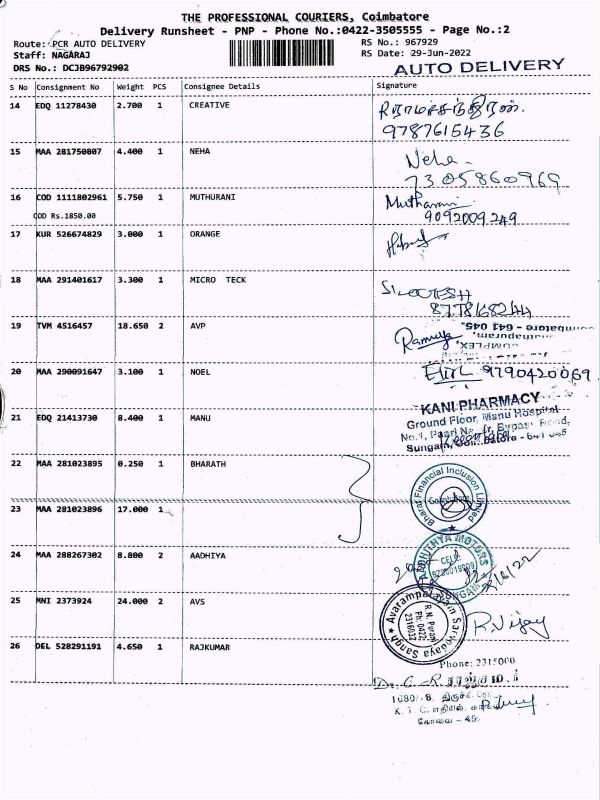 THE PROFESSIONAL COURIERS, Coimbatore
Delivery Runsheet - PNP - Phone No.:0422-3505555 - Page No.:2
Route: PCR AUTO DELIVERY
RS No.: 967929
Staff: NAGARAJ
RS Date: 29-Jun-2022
DRS No.: DCJB96792902
AUTO DELIVERY
S No Consignment No Weight PCS Consignee Details Signature
14 EDQ 11278430 2.700 1 CREATIVE
9787615436
15 MAA 281750807 4.400 1 NEHA Neha
7305860969
16 COD 1111802961 5.750 1 MUTHURANI Mutharani
COD Rs.1850.00 9092009249
17 KUR 526674829 3.000 1 ORANGE
18 MAA 291401617 3.300 1 MICRO TECK
19 TVM 4516457 18.650 2 AVP Ramya
COMPLEX,
Coimbatore - 641 045.
20 MAA 290091647 3.100 1 NOEL 9790420069
21 EDQ 21413730 8.400 1 MANU KANI PHARMACY
Ground Floor, Manu Hospital
22 MAA 281023895 0.250 1 BHARATH Bharat Financial Inclusion Limited
Coimbatore
23 MAA 281023896 17.000 1
24 MAA 288267302 8.800 2 AADHIYA AADHITHYA MOTORS
CELL:
25 MNI 2373924 24.000 2 AVS Avarampalayam Sarvodaya Sangh
R.N. Puram
Ph: 0422,
2316032
R. Vijay
26 DEL 528291191 4.650 1 RAJKUMAR Phone: 2315000
கோவை - 45